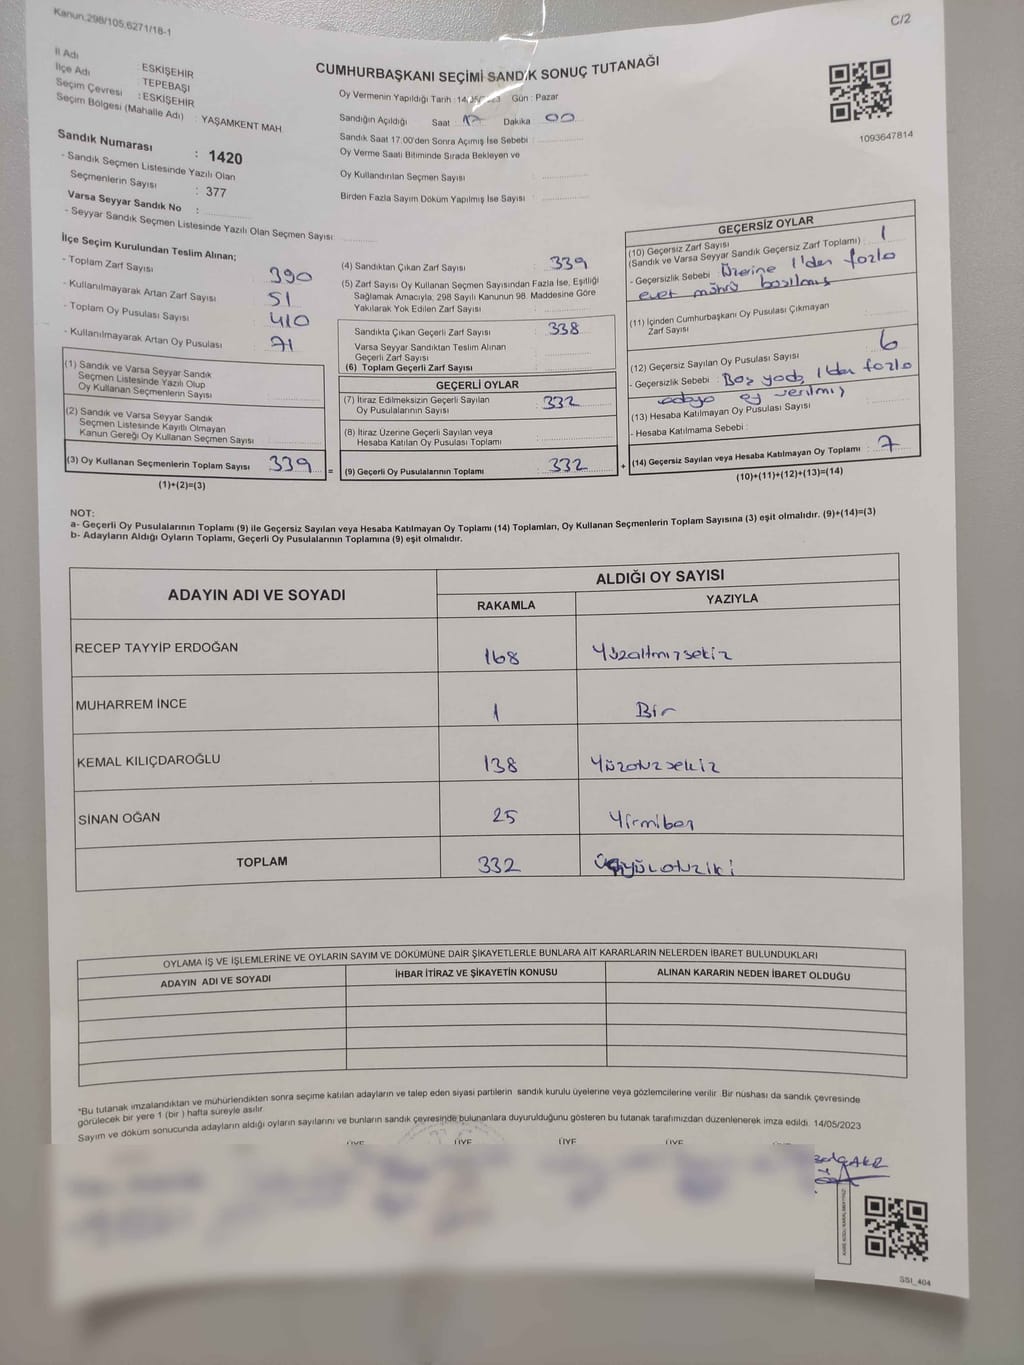 Kanun.298/105,6271/18-1
C/2
İl Adı : ESKİŞEHİR
İlçe Adı : TEPEBAŞI
Seçim Çevresi : ESKİŞEHİR
Seçim Bölgesi (Mahalle Adı) : YAŞAMKENT MAH.
Sandık Numarası : 1420
- Sandık Seçmen Listesinde Yazılı Olan
Seçmenlerin Sayısı : 377
Varsa Seyyar Sandık No :
- Seyyar Sandık Seçmen Listesinde Yazılı Olan Seçmen Sayısı:
CUMHURBAŞKANI SEÇİMİ SANDIK SONUÇ TUTANAĞI
Oy Vermenin Yapıldığı Tarih : 14/05/2023 Gün : Pazar
Sandığın Açıldığı Saat 17 Dakika 00
Sandık Saat 17:00'den Sonra Açımış İse Sebebi :
Oy Verme Saati Bitiminde Sırada Bekleyen ve
Oy Kullandırılan Seçmen Sayısı :
Birden Fazla Sayım Döküm Yapılmış İse Sayısı :
1093647814
İlçe Seçim Kurulundan Teslim Alınan;
- Toplam Zarf Sayısı : 390
- Kullanılmayarak Artan Zarf Sayısı : 51
- Toplam Oy Pusulası Sayısı : 410
- Kullanılmayarak Artan Oy Pusulası : 71
(1) Sandık ve Varsa Seyyar Sandık
Seçmen Listesinde Yazılı Olup
Oy Kullanan Seçmenlerin Sayısı :
(2) Sandık ve Varsa Seyyar Sandık
Seçmen Listesinde Kayıtlı Olmayan
Kanun Gereği Oy Kullanan Seçmen Sayısı :
(3) Oy Kullanan Seçmenlerin Toplam Sayısı : 339 =
(1)+(2)=(3)
(4) Sandıktan Çıkan Zarf Sayısı : 339
(5) Zarf Sayısı Oy Kullanan Seçmen Sayısından Fazla İse, Eşitliği
Sağlamak Amacıyla, 298 Sayılı Kanunun 98. Maddesine Göre
Yakılarak Yok Edilen Zarf Sayısı :
Sandıkta Çıkan Geçerli Zarf Sayısı : 338
Varsa Seyyar Sandıktan Teslim Alınan
Geçerli Zarf Sayısı :
(6) Toplam Geçerli Zarf Sayısı :
GEÇERLİ OYLAR
(7) İtiraz Edilmeksizin Geçerli Sayılan
Oy Pusulalarının Sayısı : 332
(8) İtiraz Üzerine Geçerli Sayılan veya
Hesaba Katılan Oy Pusulası Toplamı :
(9) Geçerli Oy Pusulalarının Toplamı : 332 +
GEÇERSİZ OYLAR
(10) Geçersiz Zarf Sayısı
(Sandık ve Varsa Seyyar Sandık Geçersiz Zarf Toplamı) : 1
- Geçersizlik Sebebi : Üzerine 1'den fazla
evet mührü basılmış
(11) İçinden Cumhurbaşkanı Oy Pusulası Çıkmayan
Zarf Sayısı :
(12) Geçersiz Sayılan Oy Pusulası Sayısı : 6
- Geçersizlik Sebebi : Boş yada 1'den fazla
adaya oy verilmiş
(13) Hesaba Katılmayan Oy Pusulası Sayısı :
- Hesaba Katılmama Sebebi :
(14) Geçersiz Sayılan veya Hesaba Katılmayan Oy Toplamı : 7
(10)+(11)+(12)+(13)=(14)
NOT:
a- Geçerli Oy Pusulalarının Toplamı (9) ile Geçersiz Sayılan veya Hesaba Katılmayan Oy Toplamı (14) Toplamları, Oy Kullanan Seçmenlerin Toplam Sayısına (3) eşit olmalıdır. (9)+(14)=(3)
b- Adayların Aldığı Oyların Toplamı, Geçerli Oy Pusulalarının Toplamına (9) eşit olmalıdır.
ADAYIN ADI VE SOYADI
ALDIĞI OY SAYISI
RAKAMLA YAZIYLA
RECEP TAYYİP ERDOĞAN 168 Yüzaltmışsekiz
MUHARREM İNCE 1 Bir
KEMAL KILIÇDAROĞLU 138 Yüzotuzsekiz
SİNAN OĞAN 25 Yirmibeş
TOPLAM 332 üçyüzotuziki
OYLAMA İŞ VE İŞLEMLERİNE VE OYLARIN SAYIM VE DÖKÜMÜNE DAİR ŞİKAYETLERLE BUNLARA AİT KARARLARIN NELERDEN İBARET BULUNDUKLARI
ADAYIN ADI VE SOYADI İHBAR İTİRAZ VE ŞİKAYETİN KONUSU ALINAN KARARIN NEDEN İBARET OLDUĞU
*Bu tutanak imzalandıktan ve mühürlendikten sonra seçime katılan adayların ve talep eden siyasi partilerin sandık kurulu üyelerine veya gözlemcilerine verilir. Bir nüshası da sandık çevresinde
görülecek bir yere 1 (bir ) hafta süreyle asılır.
Sayım ve döküm sonucunda adayların aldığı oyların sayılarını ve bunların sandık çevresinde bulunanlara duyurulduğunu gösteren bu tutanak tarafımızdan düzenlenerek imza edildi. 14/05/2023
ÜYE ÜYE ÜYE ÜYE
SSI_404